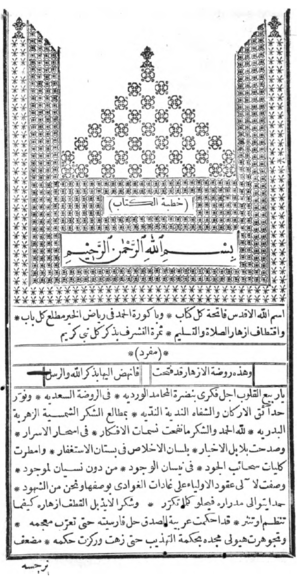 (خطبة الكتاب)
بسم الله الرحمن الرحيم
اسم الله الاقدس فاتحة كل كتاب * وباكورة الحمد فى رياض الخير مطلع كل باب *
واقتطاف ازهار الصلاة والتسليم * ثمرة التشرف بذكر كل نبي كريم
*(مفرد)*
وهذه روضة الازهار قد فتحت فانهض اليها بذكر الله والرسل
يا ربيع القلوب اجل فكرى بنضرة المحامد الوردية * فى الروضة السعدية * ونور
حدائق الاركان والشفاه الندية النقية * بمطالع الشكر الشمسية الزهرية
البدرية * فلله الحمد والشكر ما نفحت نسمات الافكار * فى اسحار الاسرار *
وصدحت بلابل الاخبار * بلسان الاخلاص فى بستان الاستغفار * وامطرت
كليات سحائب الجود * فى نيسان الوجود * من دون نسيان لموجود *
وصفت لآلى عقود الاولياء على غادات الغوادى بوصفها من الشهود *
حمدا يتوالى مدراره فيحلو كلما تكرر * وشكرا لا يذبل القتطف ازهاره كيفما
تنظم او تنثر * قد احكمت عربية الصدق حل فارسيته حتى تعرب معجمه *
وتجوهرت هيولى مجده بحكمة التهذيب حتى زهت وركزت حكمه * مضعف
ترجمه